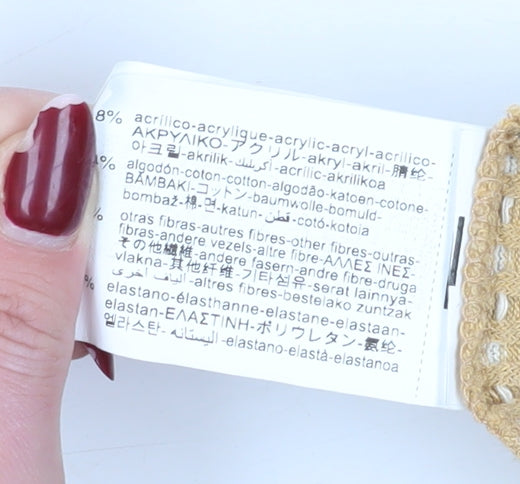 8% acrílico-acrylique-acrylic-acryl-acrilico-
ΑΚΡΥΛΙΚΟ-アクリル-akryl-akril-腈纶-
아크릴-akrilik-أكريليك-acrílic-akrilikoa
% algodón-coton-cotton-algodão-katoen-cotone-
BAMBAKI-コットン-baumwolle-bomuld-
bombaž-棉-면-katun-قطن-cotó-kotoia
% otras fibras-autres fibres-other fibres-outras-
fibras-andere vezels-altre fibre-ΑΛΛΕΣ ΙΝΕΣ-
その他繊維-andere fasern-andre fibre-druga
vlakna-其他纤维-기타섬유-serat lainnya-
ألياف أخرى-altres fibres-bestelako zuntzak
% elastano-élasthanne-elastane-elastaan-
elastan-ΕΛΑΣΤΙΝΗ-ポリウレタン-氨纶-
엘라스탄-اليستانه-elastano-elastà-elastanoa